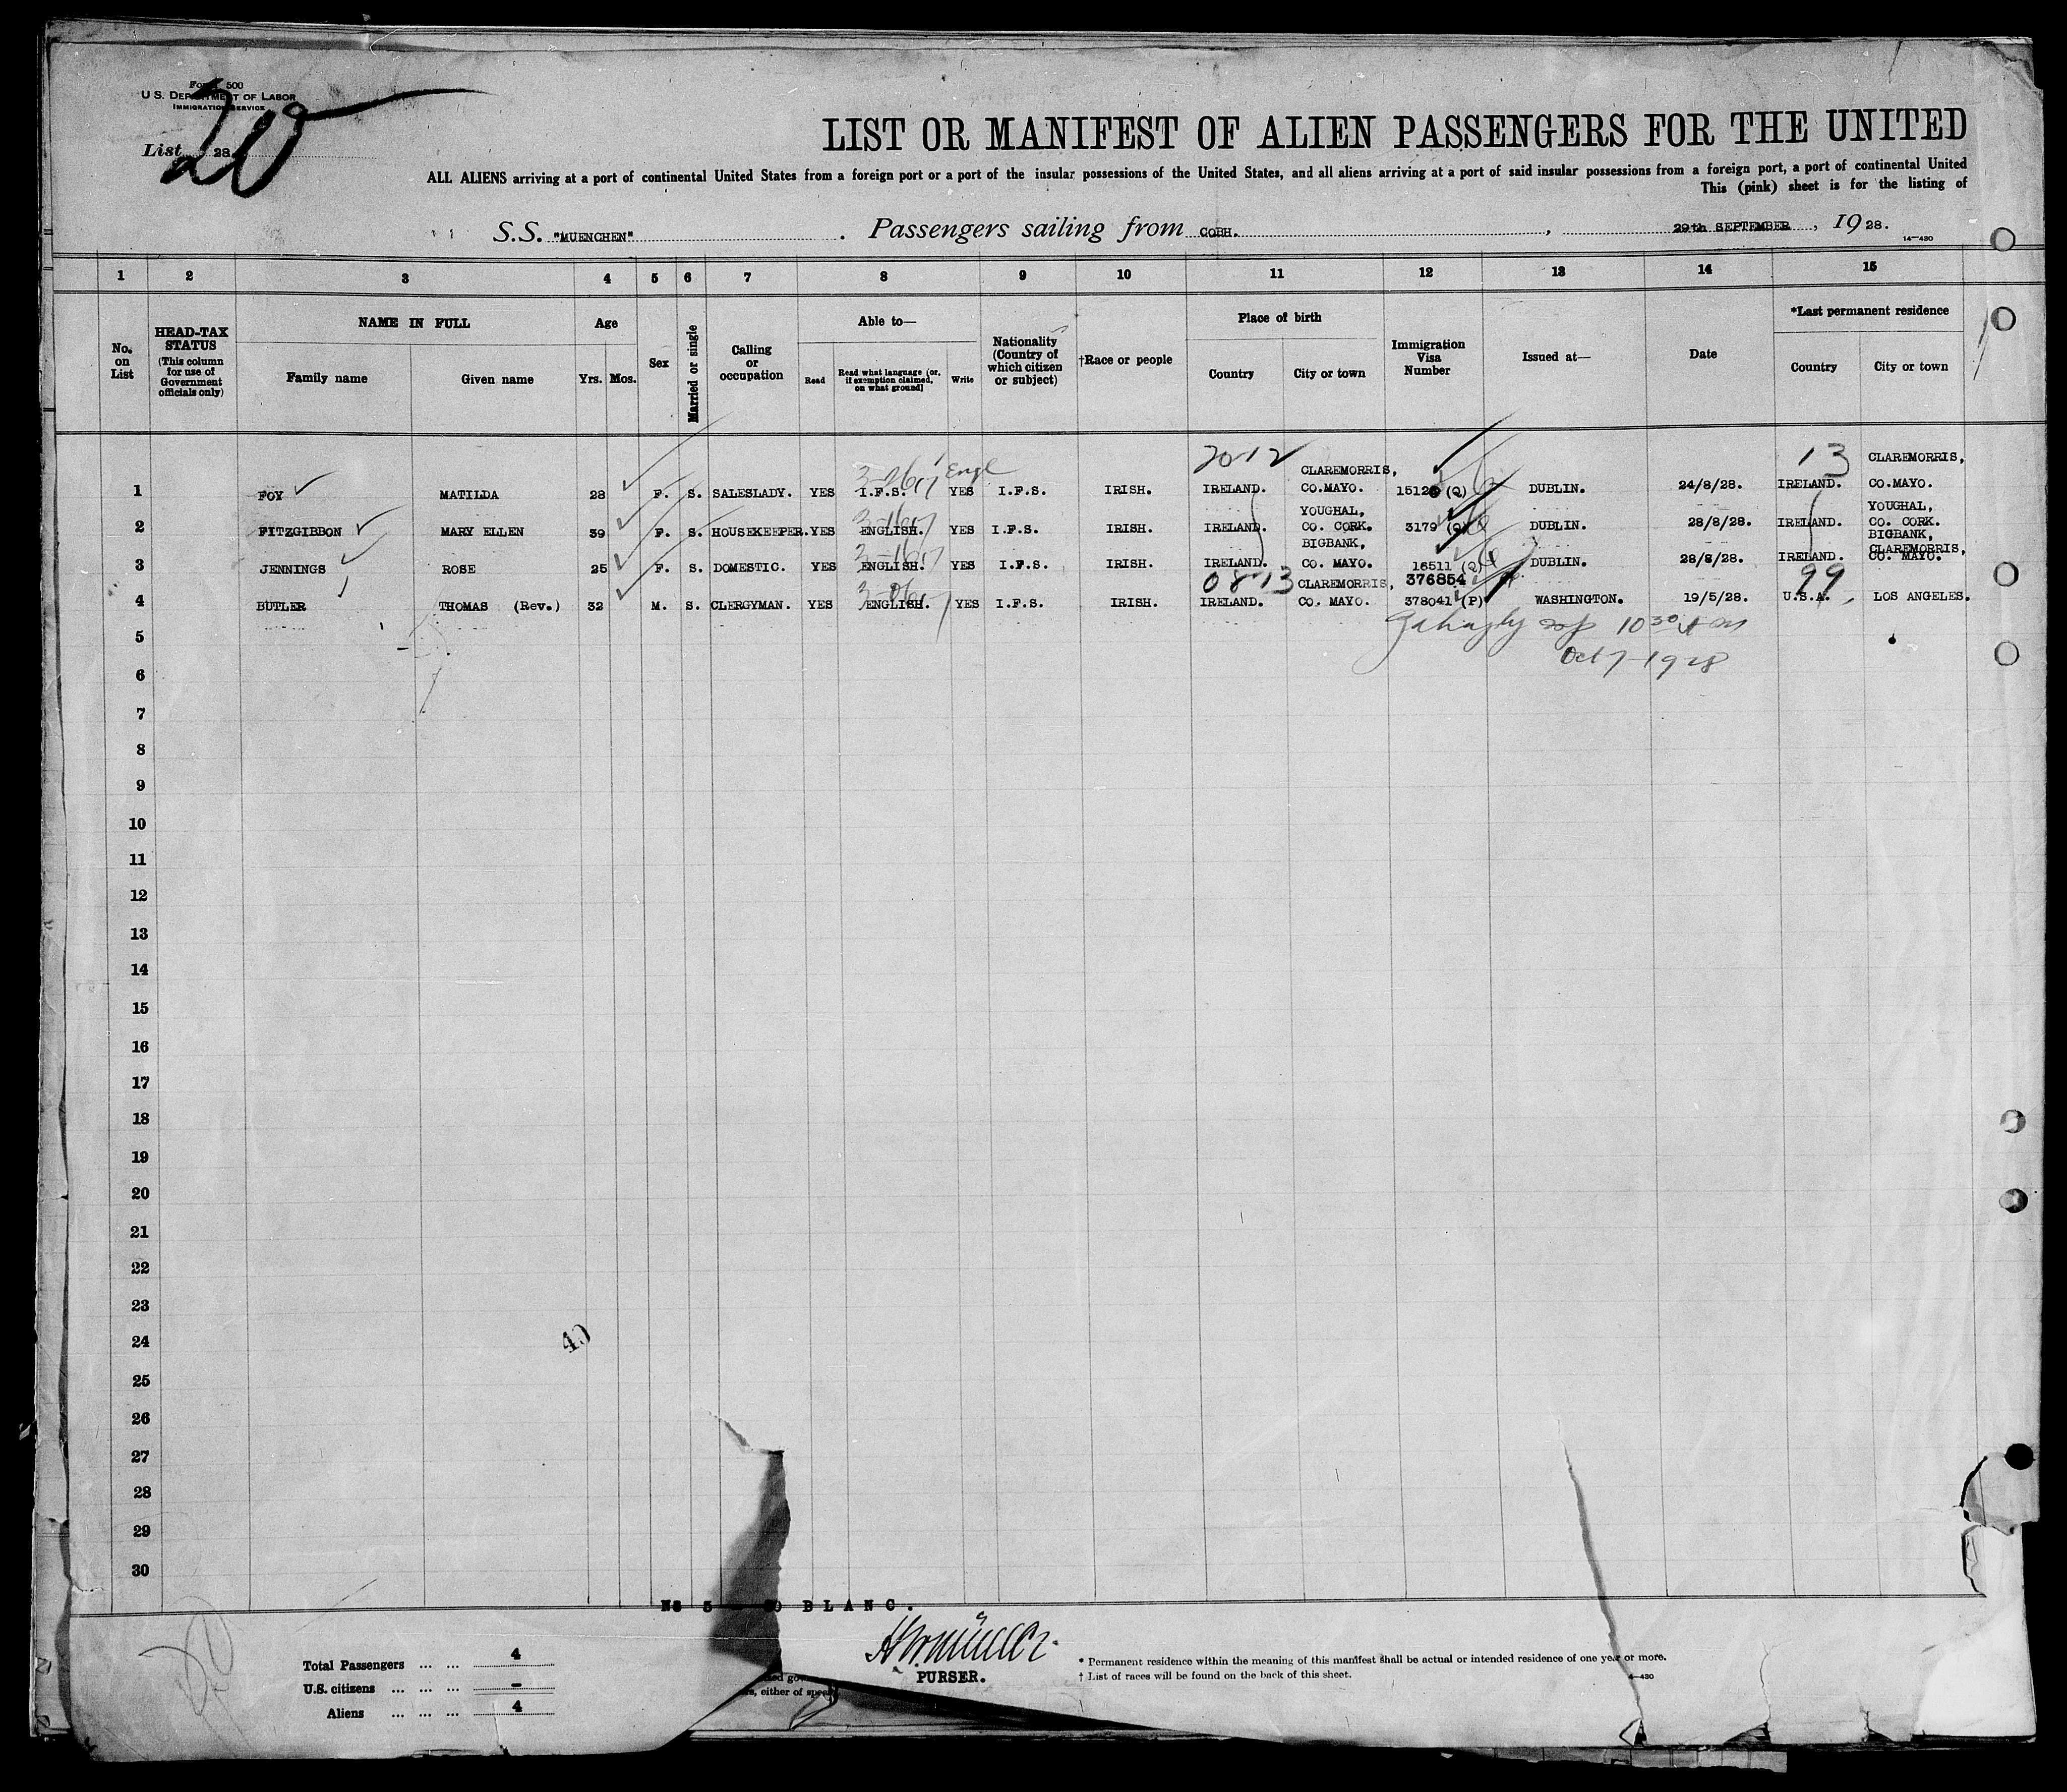 Form 500
U.S. DEPARTMENT OF LABOR
IMMIGRATION SERVICE
List 28
20
LIST OR MANIFEST OF ALIEN PASSENGERS FOR THE UNITED
ALL ALIENS arriving at a port of continental United States from a foreign port or a port of the insular possessions of the United States, and all aliens arriving at a port of said insular possessions from a foreign port, a port of continental United
This (pink) sheet is for the listing of
S.S. "MUENCHEN" . Passengers sailing from COBH. , 29th SEPTEMBER , 1928.
14—430
1 2 3 4 5 6 7 8 9 10 11 12 13 14 15
No. on List
HEAD-TAX STATUS
(This column for use of Government officials only)
NAME IN FULL
Family name Given name
Age
Yrs. Mos.
Sex
Married or single
Calling or occupation
Able to—
Read
Read what language (or, if exemption claimed, on what ground)
Write
Nationality (Country of which citizen or subject)
†Race or people
Place of birth
Country City or town
Immigration Visa Number
Issued at—
Date
*Last permanent residence
Country City or town
2012 13
Engl
1 FOY MATILDA 28 F. S. SALESLADY. YES I.F.S. YES I.F.S. IRISH. IRELAND. CLAREMORRIS, CO.MAYO. (Q) DUBLIN. 24/8/28. IRELAND. CLAREMORRIS, CO.MAYO.
2 FITZGIBBON MARY ELLEN 39 F. S. HOUSEKEEPER. YES ENGLISH. YES I.F.S. IRISH. IRELAND. YOUGHAL, CO. CORK. 3179 (Q) DUBLIN. 28/8/28. IRELAND. YOUGHAL, CO. CORK.
3 JENNINGS ROSE 25 F. S. DOMESTIC. YES ENGLISH. YES I.F.S. IRISH. IRELAND. BIGBANK, CO. MAYO. 16511 (Q) DUBLIN. 28/8/28. IRELAND. BIGBANK, CLAREMORRIS, CO. MAYO.
0813 376854 99
4 BUTLER THOMAS (Rev.) 32 M. S. CLERGYMAN. YES ENGLISH. YES I.F.S. IRISH. IRELAND. CLAREMORRIS, CO. MAYO. 378041 (P) WASHINGTON. 19/5/28. U.S.A. LOS ANGELES.
10 30 AM
Oct 7-1928
5
6
7
8
9
10
11
12
13
14
15
16
17
18
19
20
21
22
23
24
25
26
27
28
29
30
40
No 5 - 30 BLANC.
Total Passengers ... ... 4
U.S. citizens ... ... ... -
Aliens ... ... ... 4
PURSER.
* Permanent residence within the meaning of this manifest shall be actual or intended residence of one year or more.
† List of races will be found on the back of this sheet.
, either of
20